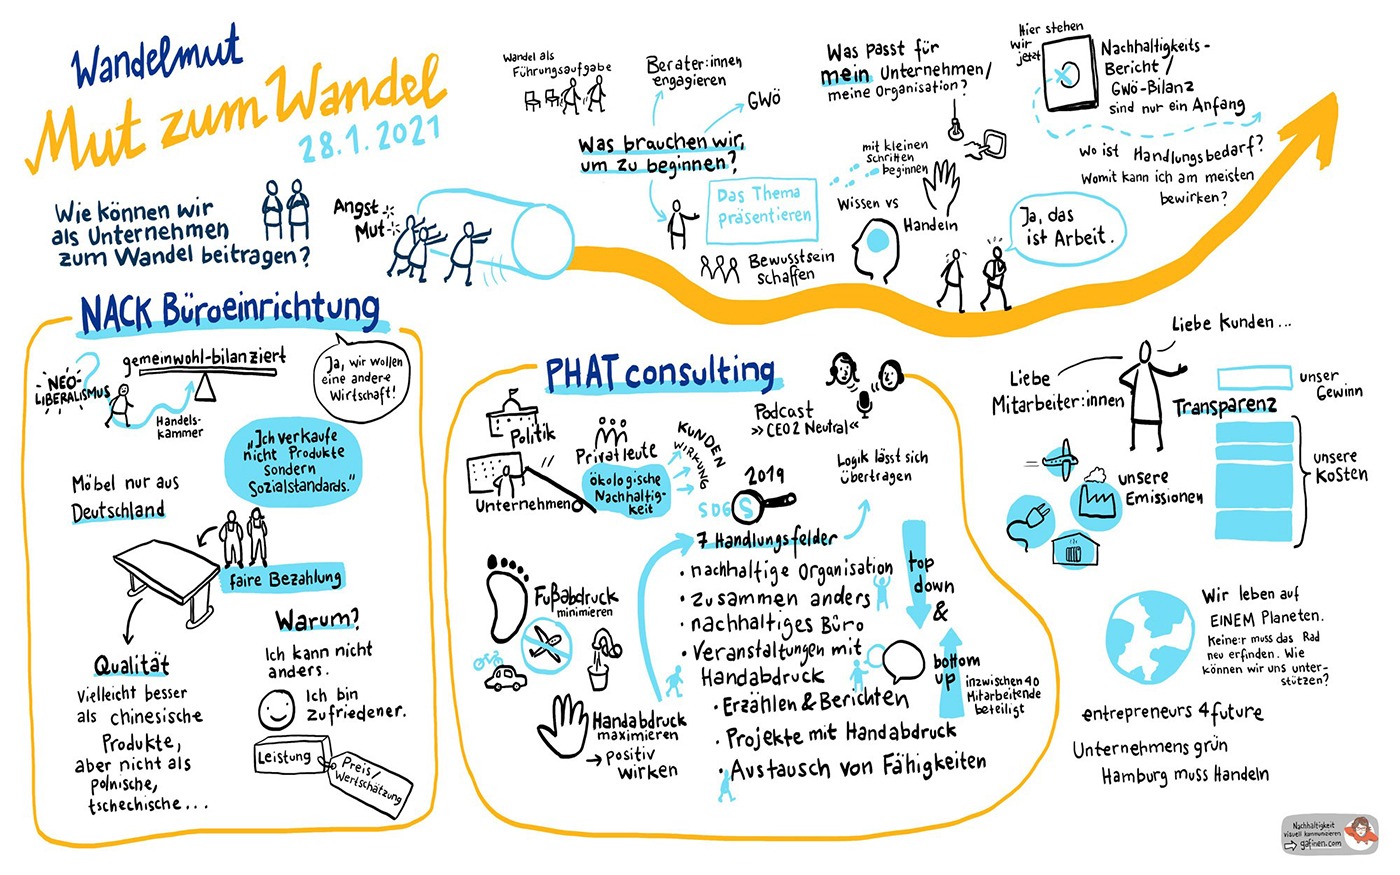 Wandelmut
Mut zum Wandel
28.1.2021
Wie können wir
als Unternehmen
zum Wandel beitragen?
Angst
Mut
Wandel als
Führungsaufgabe
Berater:innen
engagieren
GWÖ
Was brauchen wir,
um zu beginnen?
Das Thema
präsentieren
Bewusstsein
schaffen
Was passt für
mein Unternehmen/
meine Organisation?
mit kleinen
Schritten
beginnen
Wissen vs
Handeln
Ja, das
ist Arbeit.
Hier stehen
wir
jetzt
Nachhaltigkeits-
Bericht/
GWÖ-Bilanz
sind nur ein Anfang
Wo ist Handlungsbedarf?
Womit kann ich am meisten
bewirken?
NACK Büroeinrichtung
gemeinwohl-bilanziert
NEO-
LIBERALISMUS
?
Handels-
kammer
Ja, wir wollen
eine andere
Wirtschaft!
"Ich verkaufe
nicht Produkte
sondern
Sozialstandards."
Möbel nur aus
Deutschland
faire Bezahlung
Qualität
vielleicht besser
als chinesische
Produkte,
aber nicht als
polnische,
tschechische...
Warum?
Ich kann nicht
anders.
Ich bin
zufriedener.
Leistung
Preis/
Wertschätzung
PHAT consulting
Politik
Unternehmen
Privatleute
ökologische
Nachhaltig-
keit
KUNDEN
WIRKUNG
SDGS
2019
Podcast
»CEO2 Neutral«
Logik lässt sich
übertragen
Fußabdruck
minimieren
Handabdruck
maximieren
→ positiv
wirken
7 Handlungsfelder
• nachhaltige Organisation
• zusammen anders
• nachhaltiges Büro
• Veranstaltungen mit
Handabdruck
• Erzählen & Berichten
• Projekte mit Handabdruck
• Austausch von Fähigkeiten
top
down
&
bottom
up
inzwischen 40
Mitarbeitende
beteiligt
Liebe Kunden...
Liebe
Mitarbeiter:innen
Transparenz
unser
Gewinn
unsere
Kosten
unsere
Emissionen
Wir leben auf
EINEM Planeten.
Keine:r muss das Rad
neu erfinden. Wie
können wir uns unter-
stützen?
entrepreneurs 4 future
Unternehmens grün
Hamburg muss Handeln
Nachhaltigkeit
visuell kommunizieren
gafinen.com